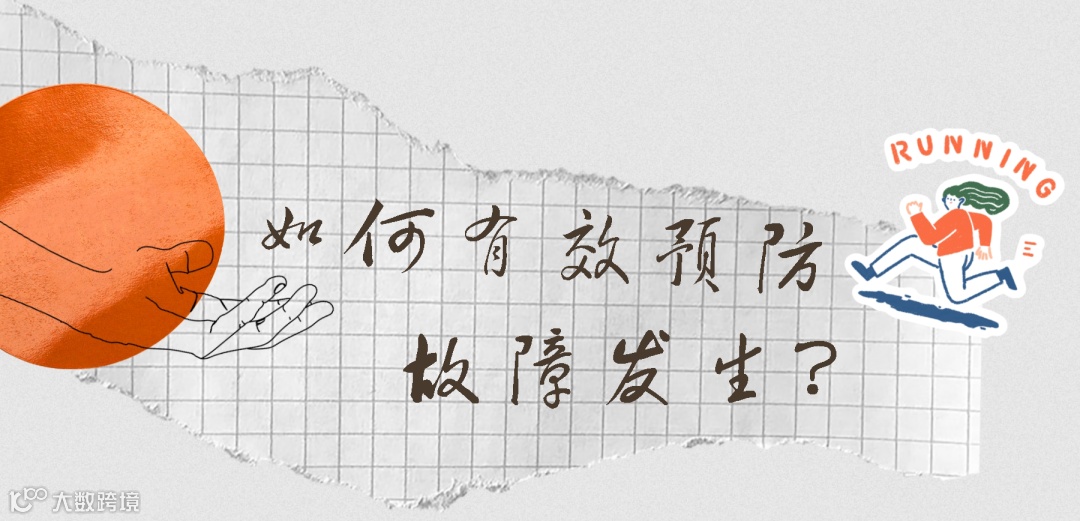 RUNNING
如何有效预防
故障发生?
大数跨境